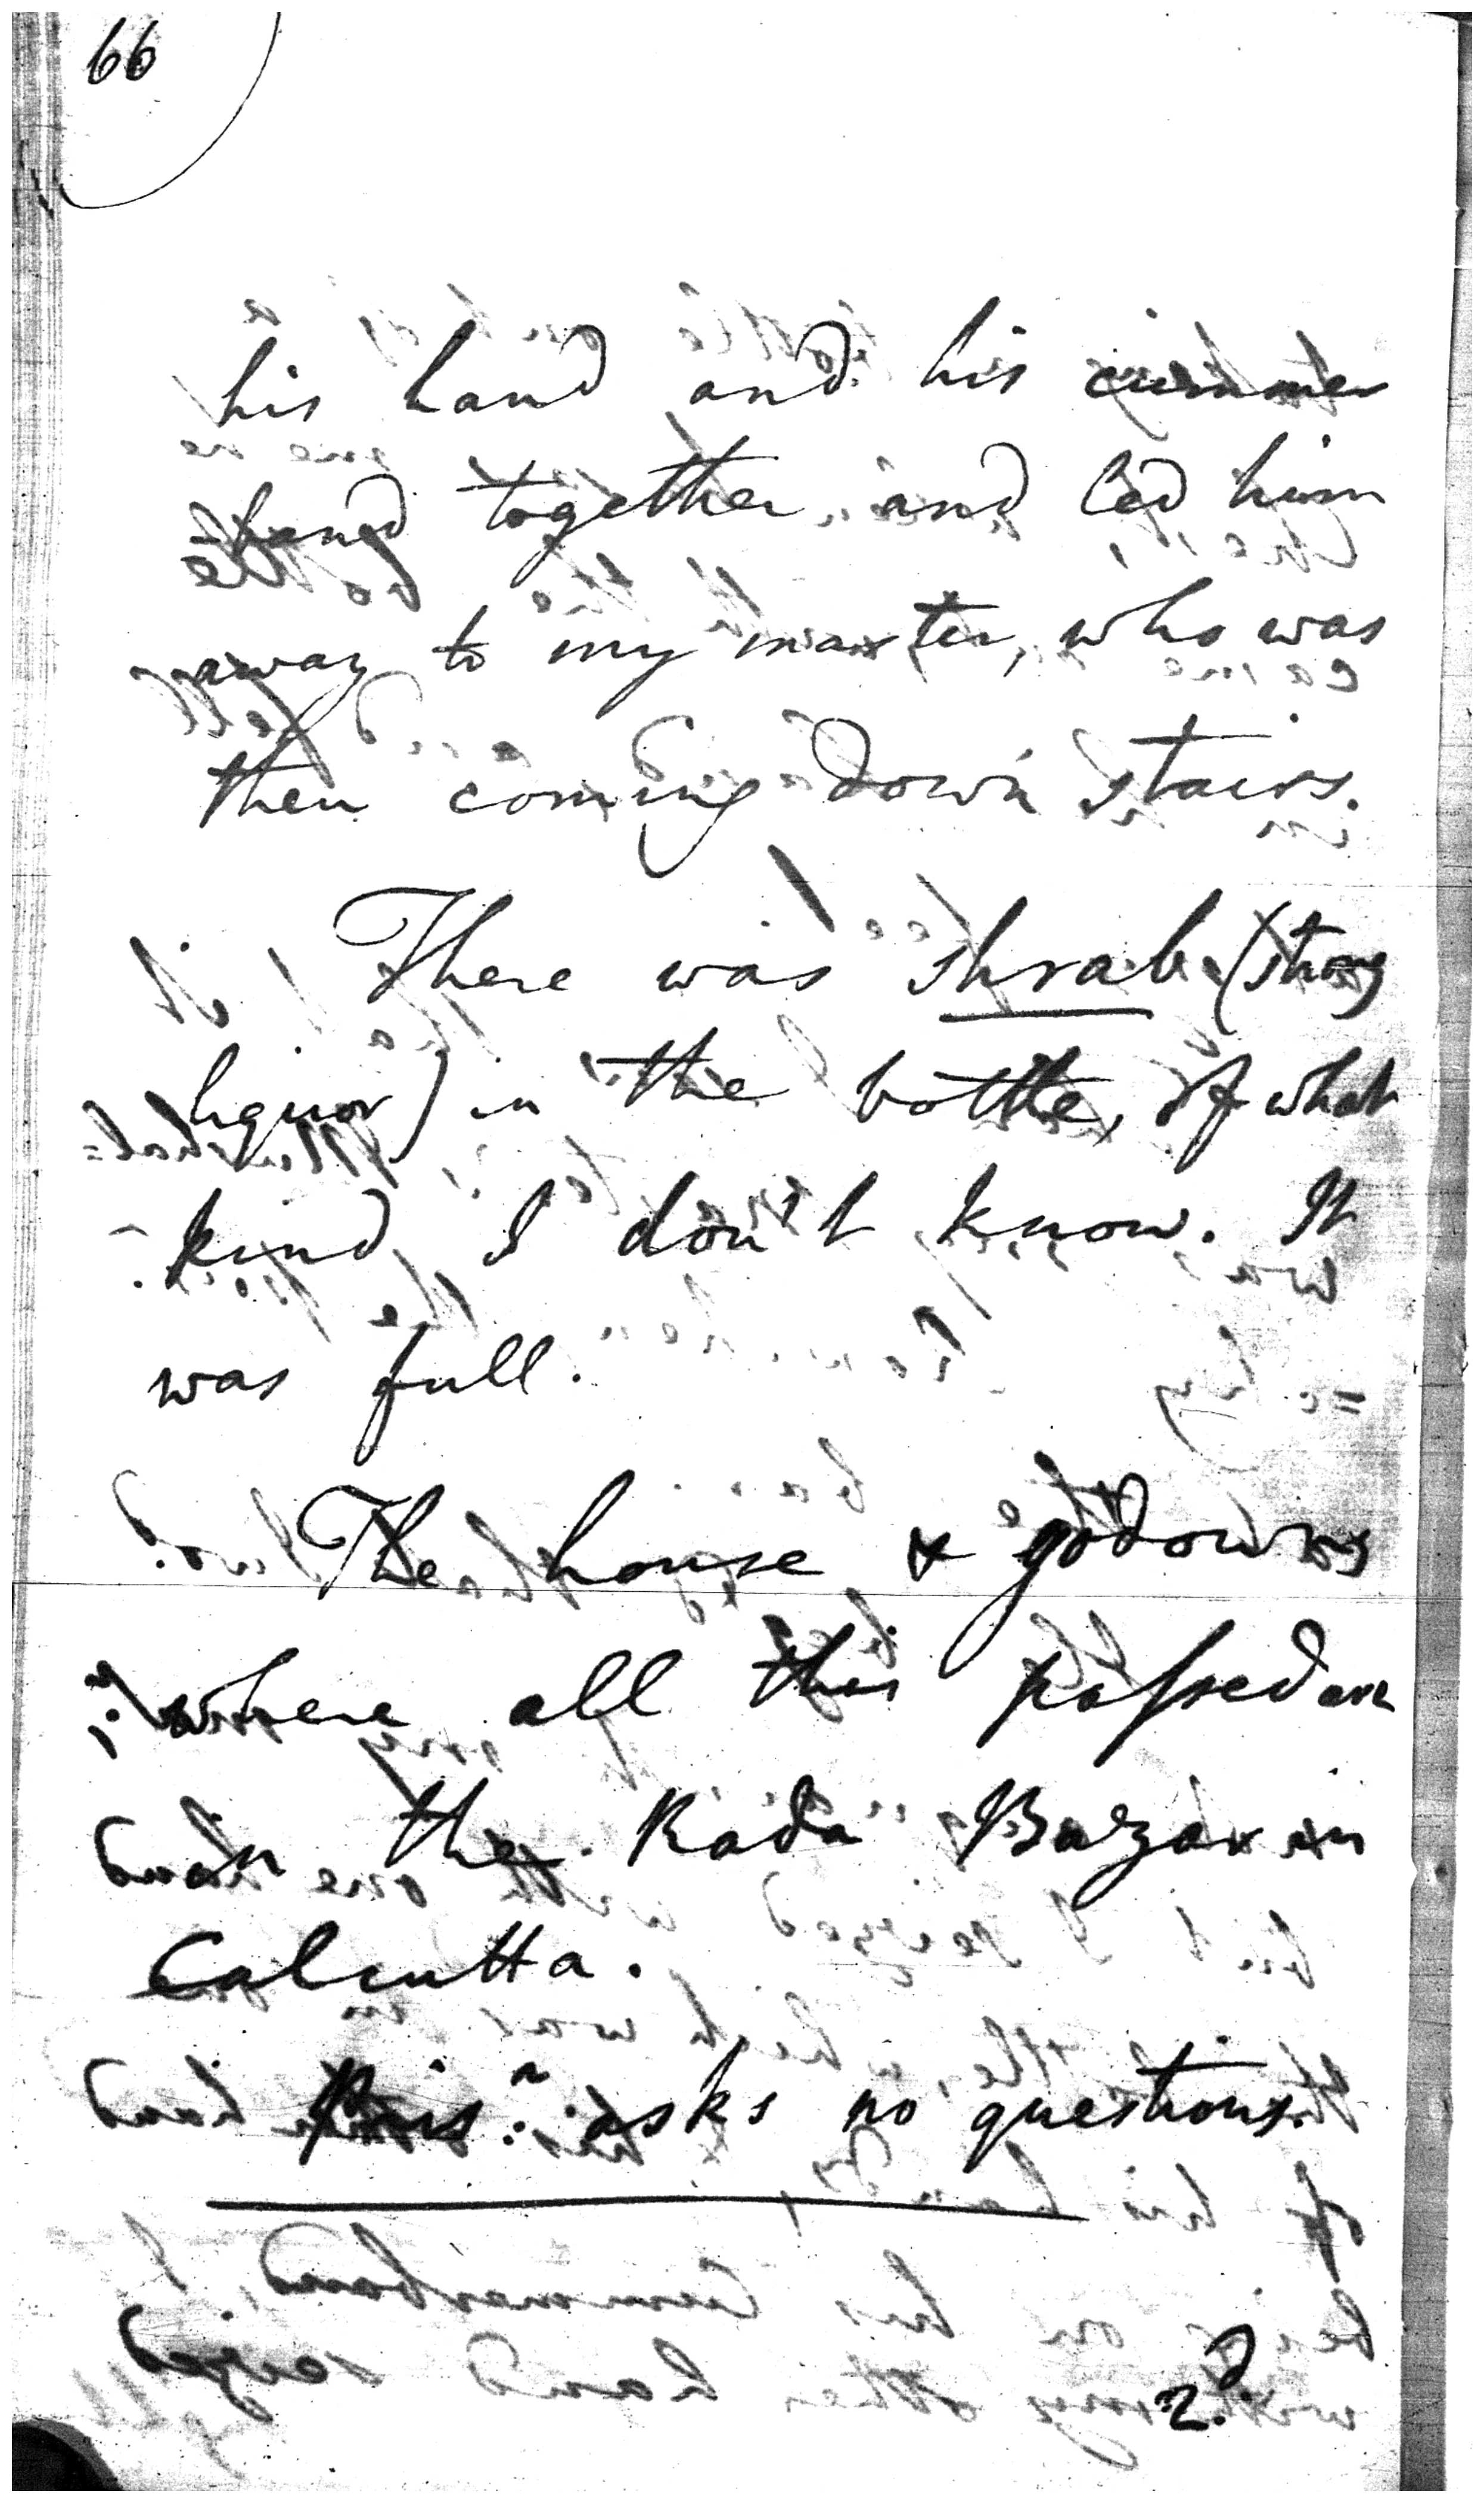 66
his hand and his cummer
band together and led him
away to my master, who was
then coming down stairs.
There was shrab (strong
liquor) in the bottle, of what
kind I don't know. It
was full.
The house & godowns
where all this passed are
in the Rada Bazar in
Calcutta.
Pris.r asks no questions.
2.d